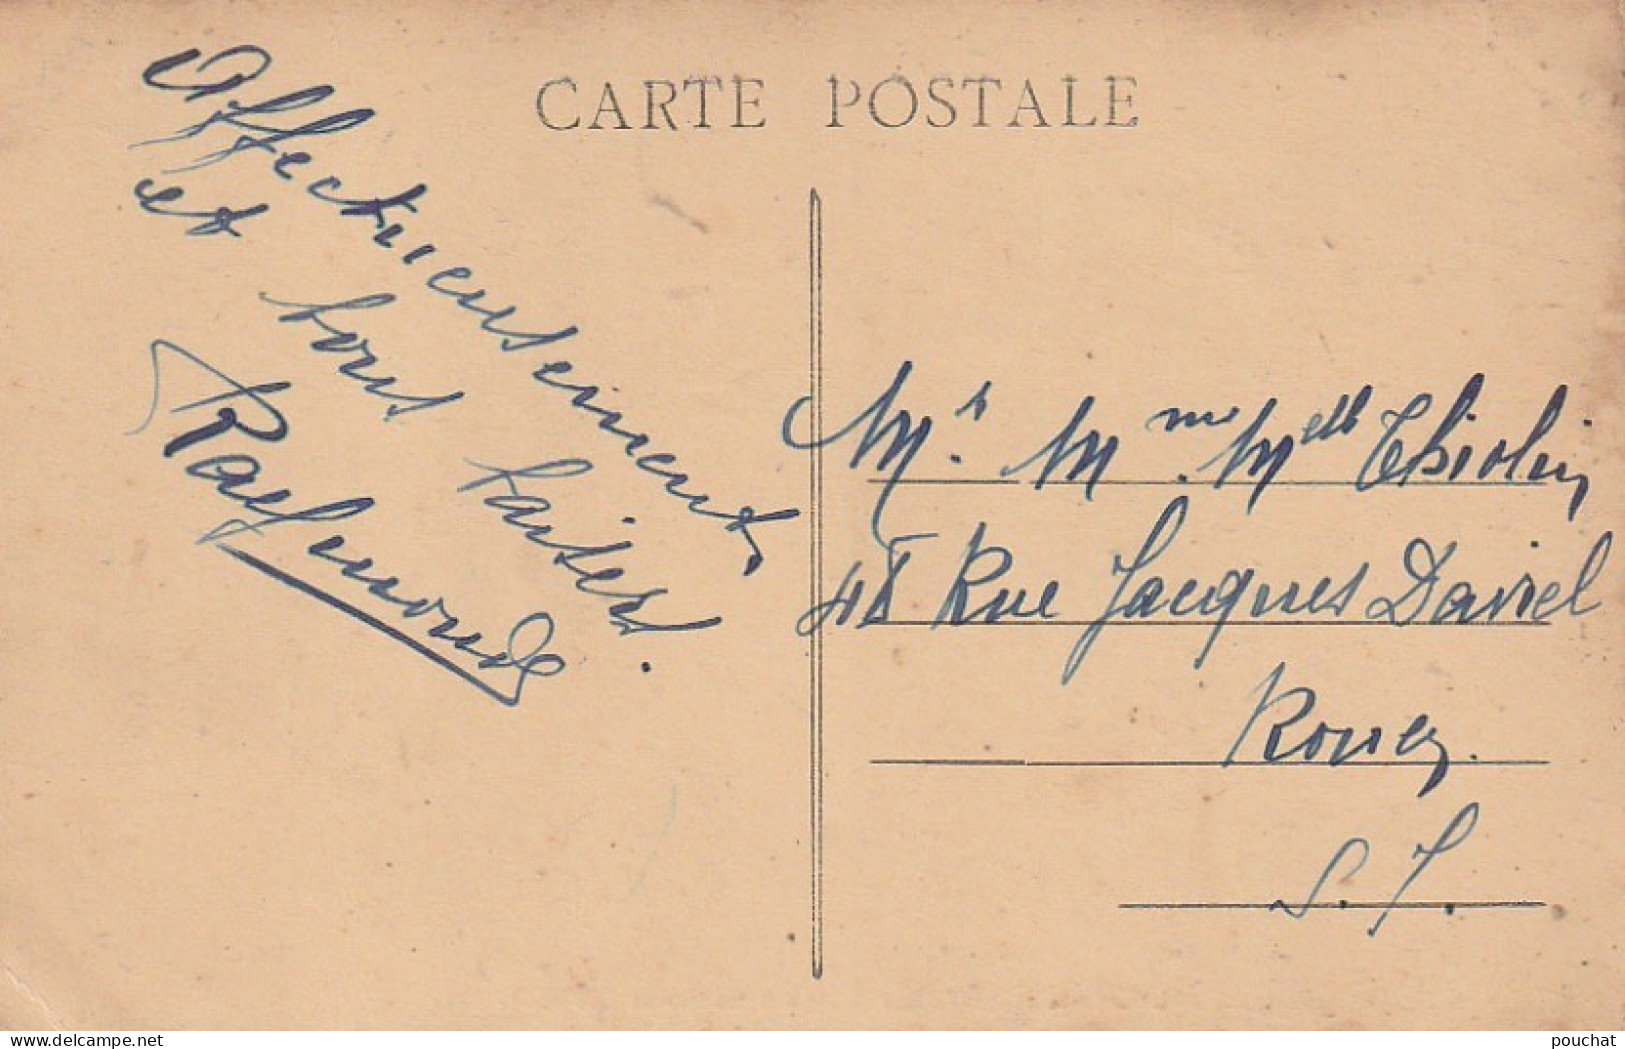 CARTE POSTALE
Affectueusement
et bons baisers.
Raymonde
Mr. Mme. Melle Thiolin
Rue Jacques Daviel
Rouen.
S. I.
delcampe.net
pouchat